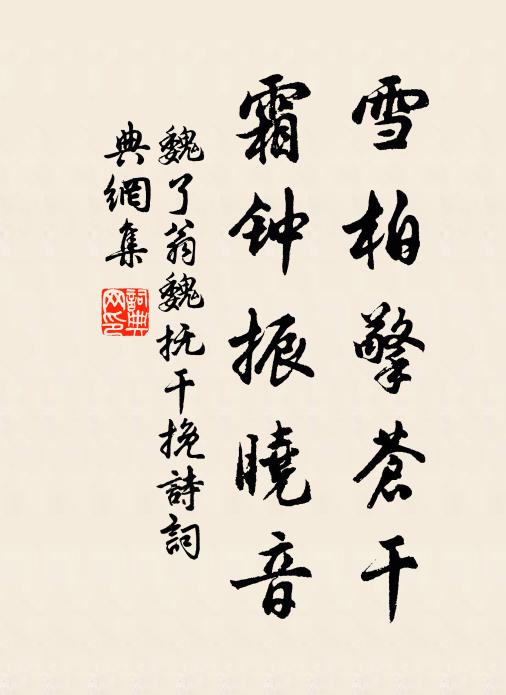 雪柏擎蒼干
霜钟振曉音
魏了翁魏抚干挽詩詞
典網集
詞典网印